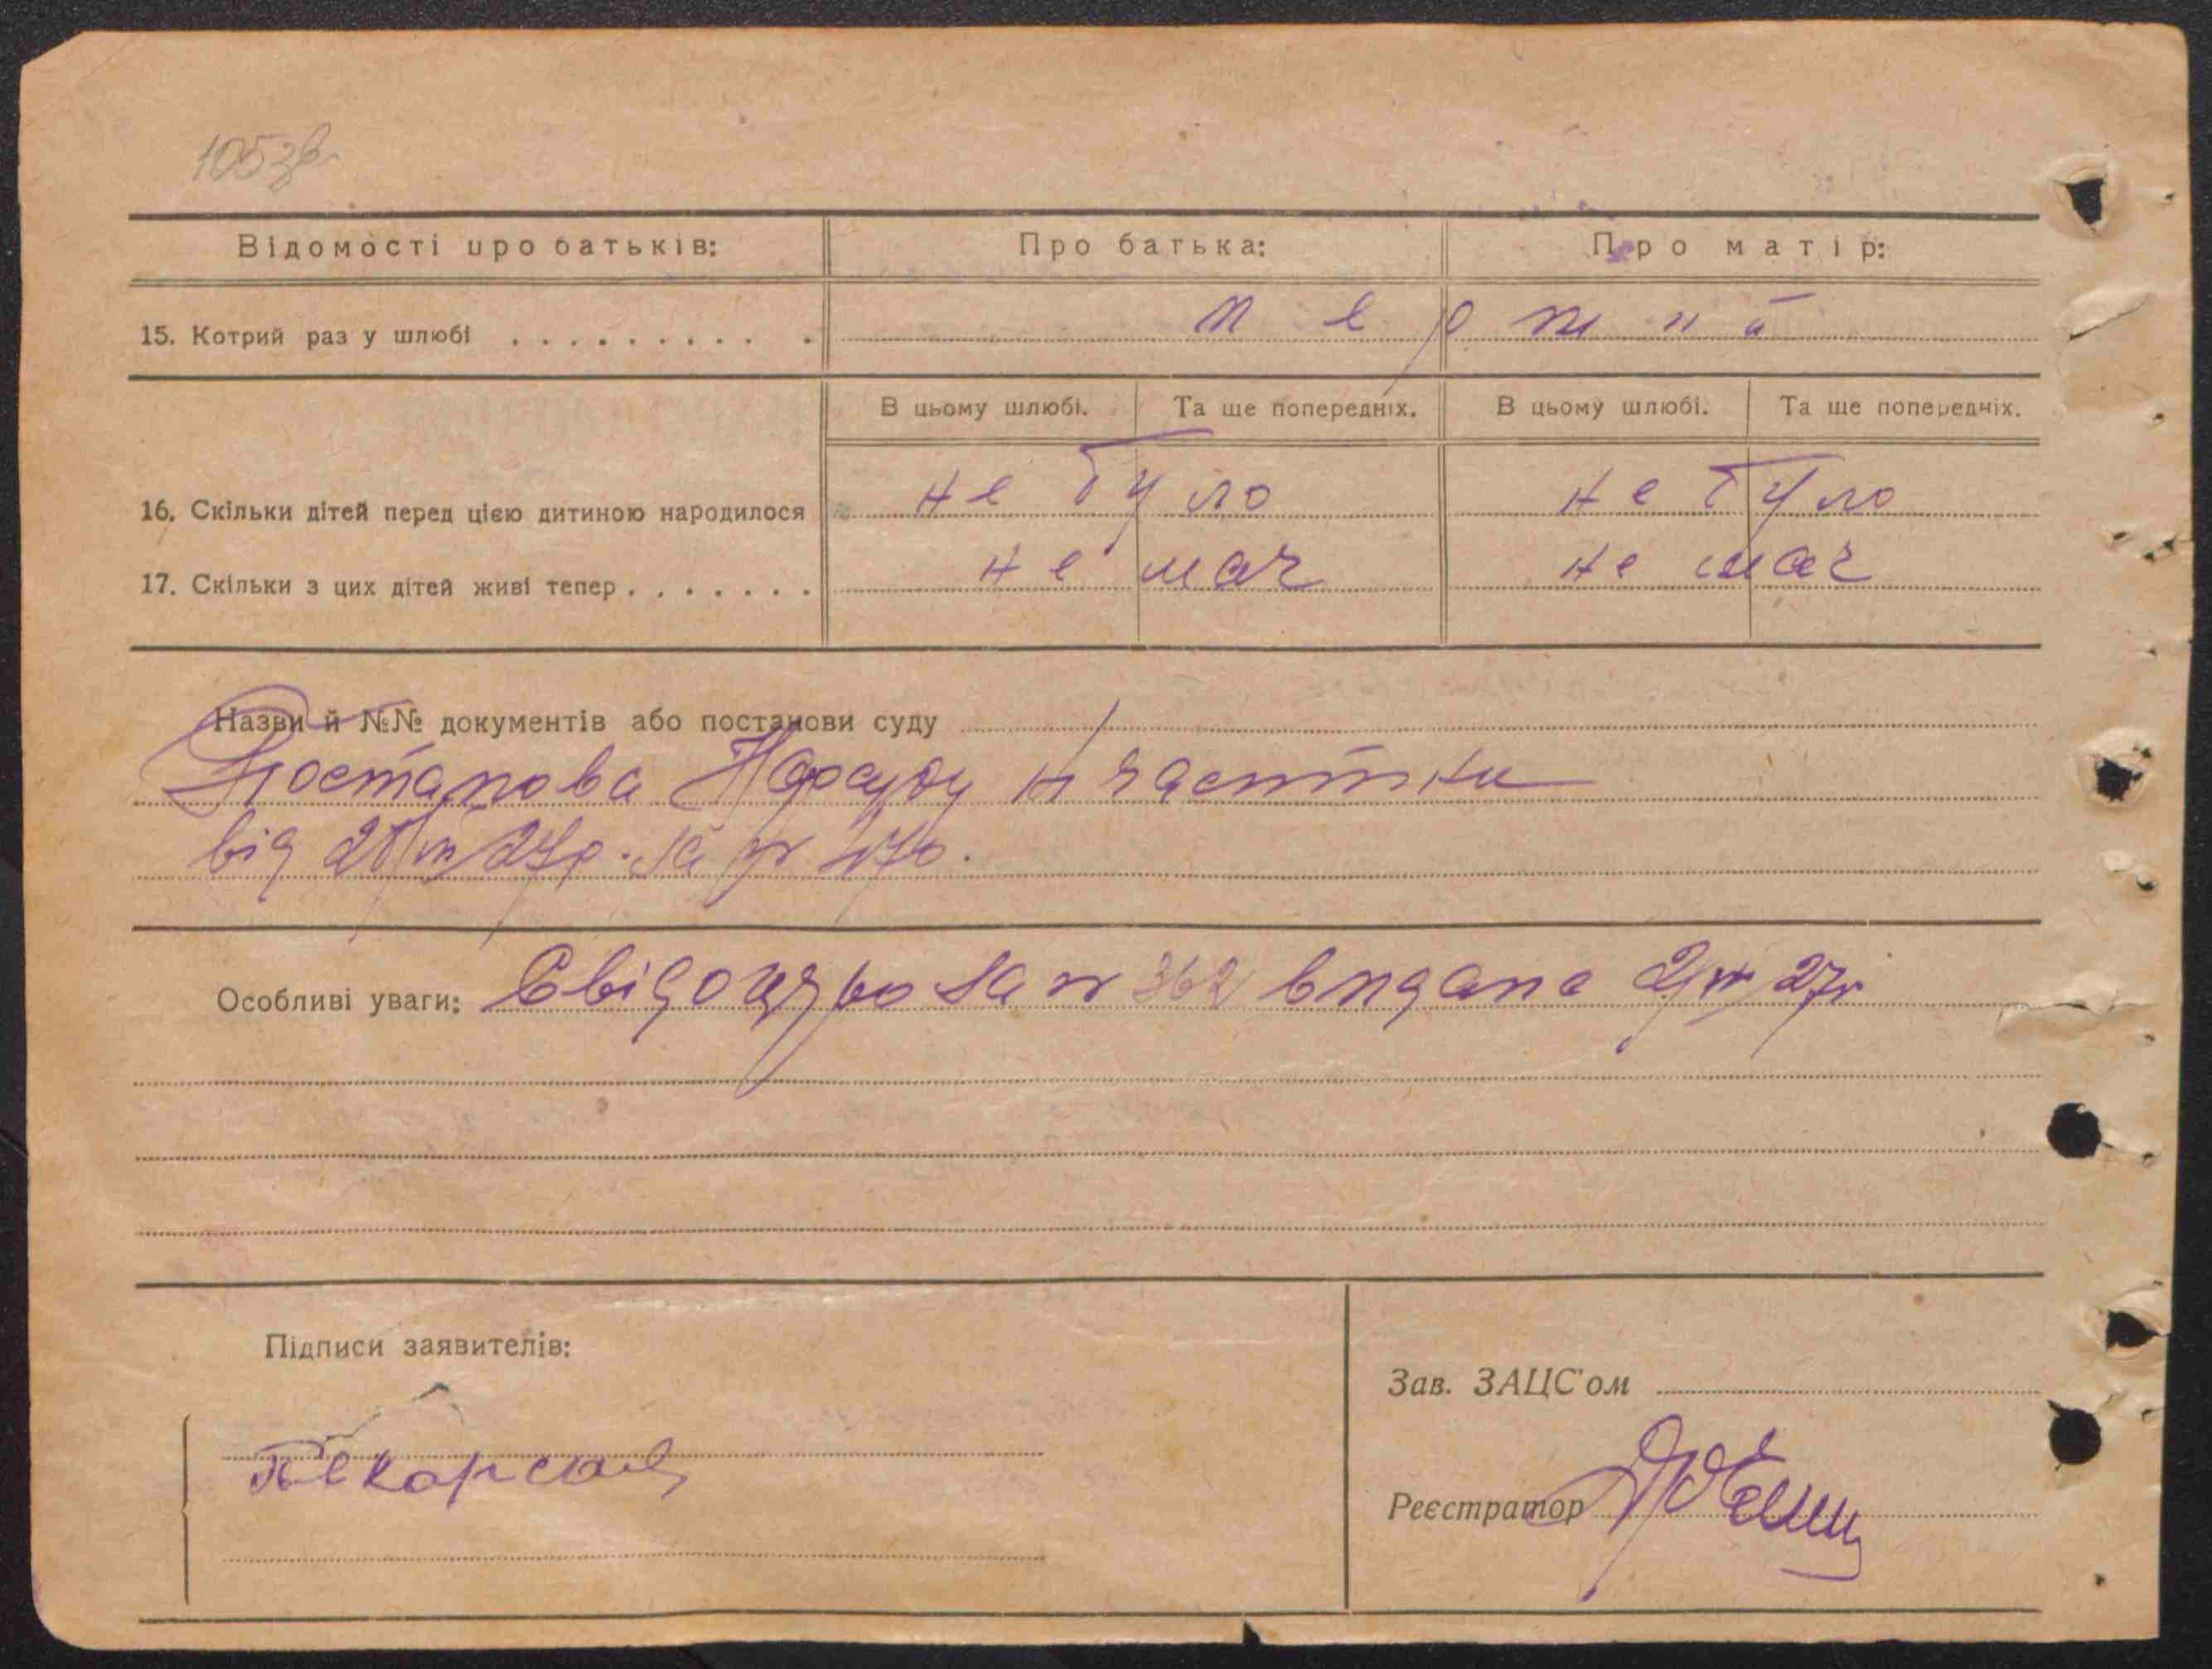 105зв
Відомості про батьків: Про батька: Про матір:
15. Котрий раз у шлюбі . . . . . . . . . . перший
В цьому шлюбі. Та ще попередніх. В цьому шлюбі. Та ще попередніх.
16. Скільки дітей перед цією дитиною народилося не було не було
17. Скільки з цих дітей живі тепер . . . . . . . не має не має
Назви й №№ документів або постанови суду
Постанова Нарсуду
від 27р. за
Особливі уваги: Свідоцтво за № 362 видане 27р
Підписи заявителів:
Зав. ЗАЦС'ом
Пекарский
Реєстратор